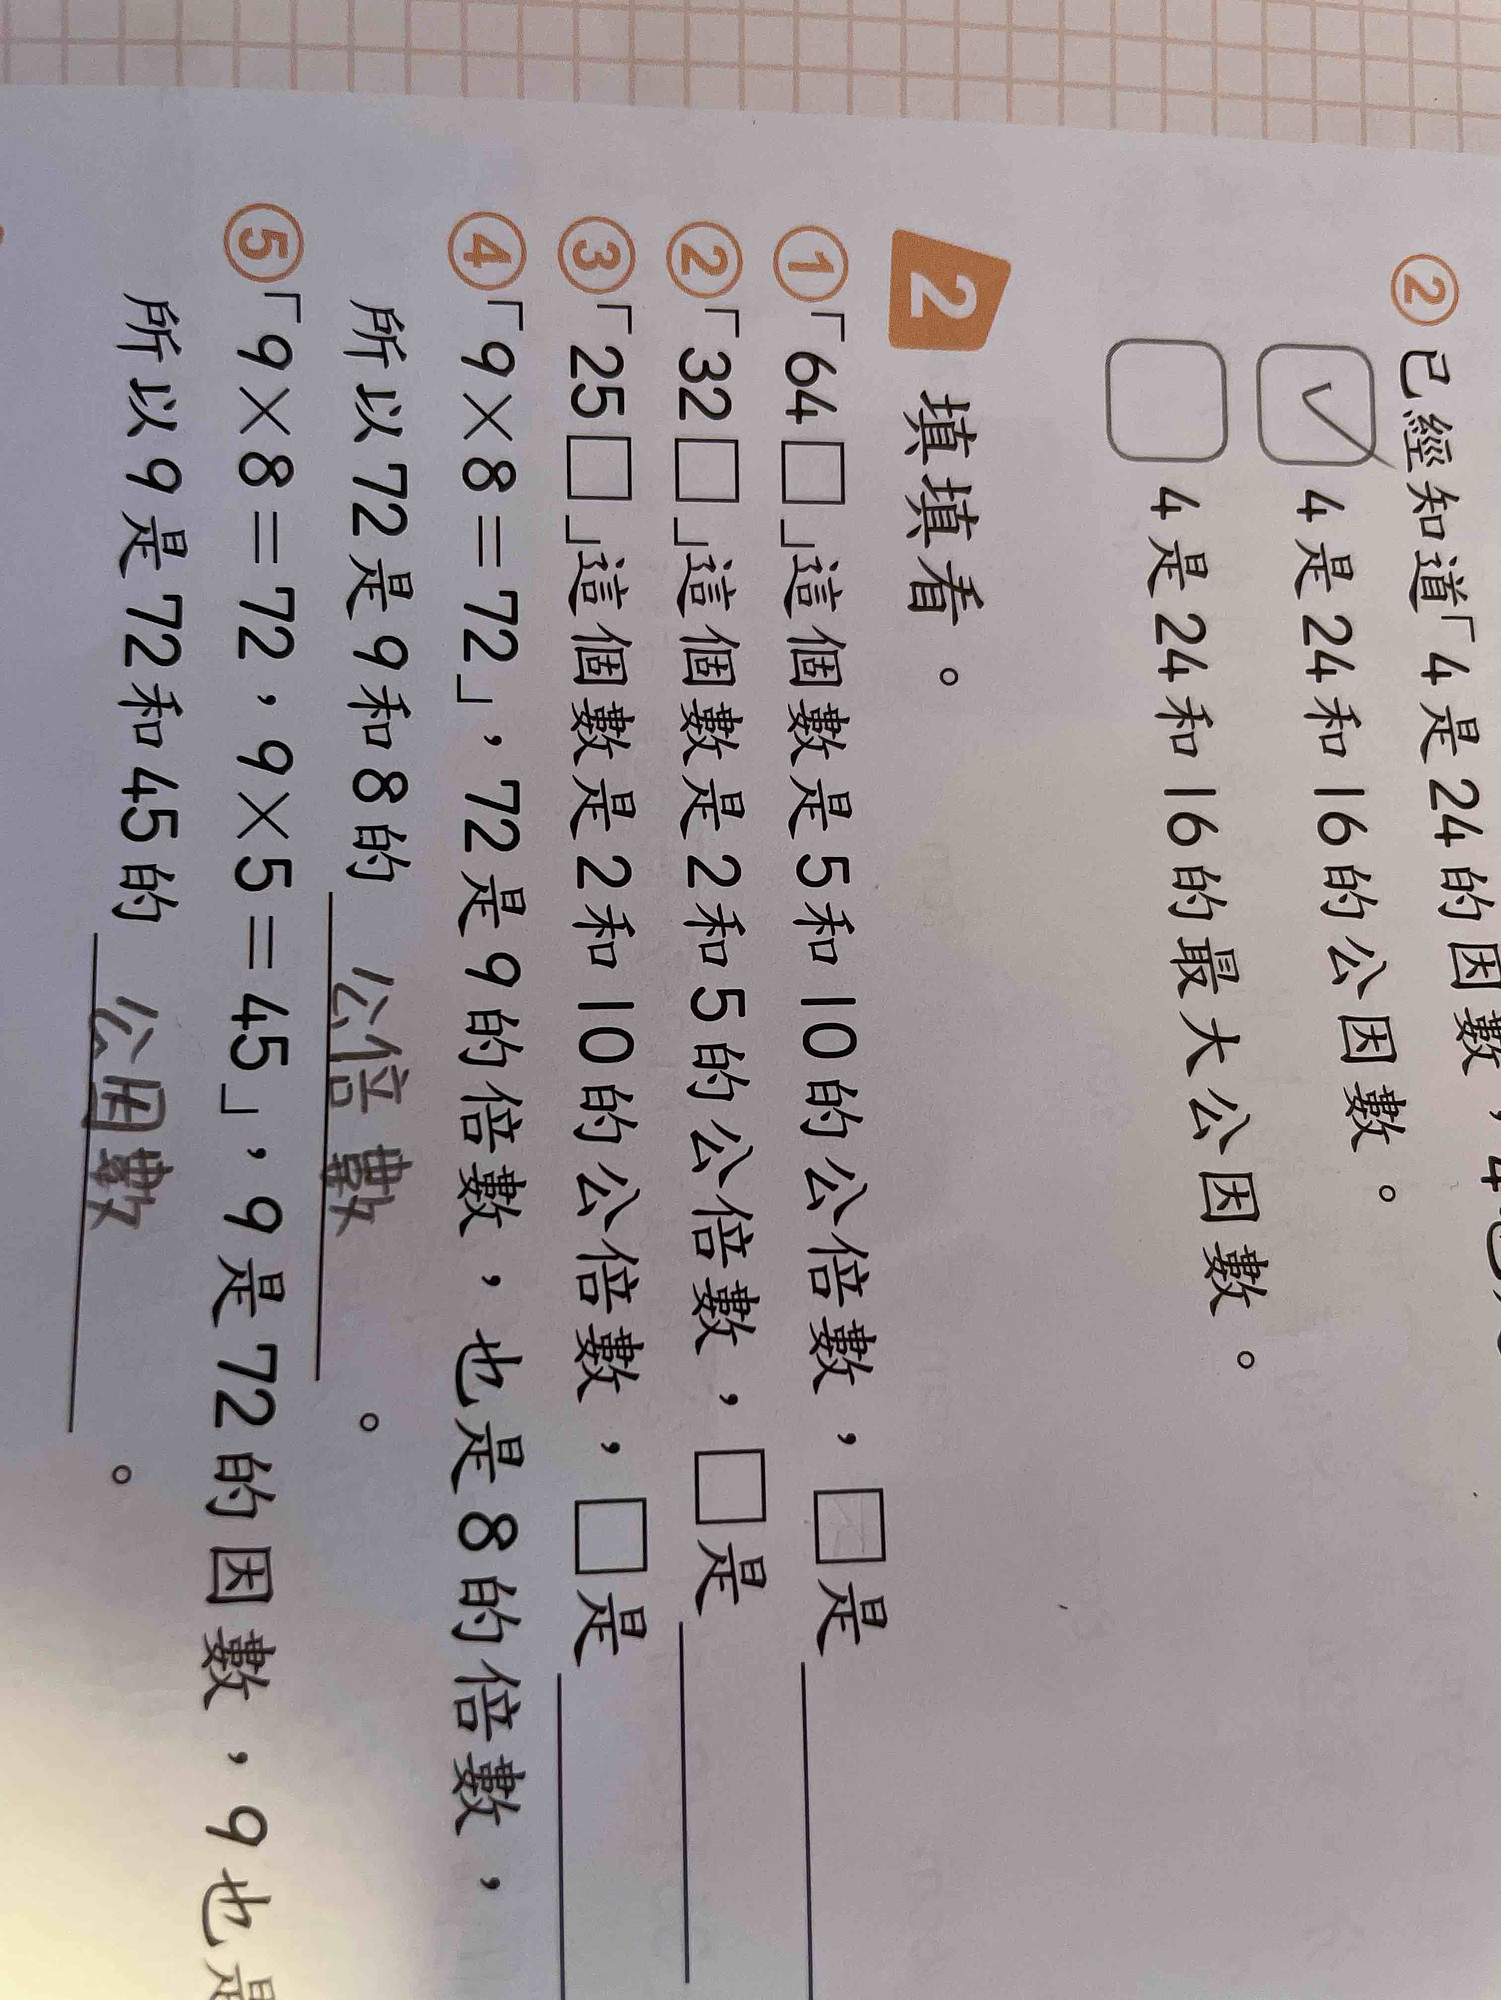 ②已經知道「4是24的因數，4也
✓ 4是24和16的公因數。
4是24和16的最大公因數。
2 填填看。
①「64□」這個數是5和10的公倍數，□是
②「32□」這個數是2和5的公倍數，□是
③「25□」這個數是2和10的公倍數，□是
④「9×8＝72」，72是9的倍數，也是8的倍數，
所以72是9和8的 公倍數。
⑤「9×8＝72，9×5＝45」，9是72的因數，9也是
所以9是72和45的 公因數。